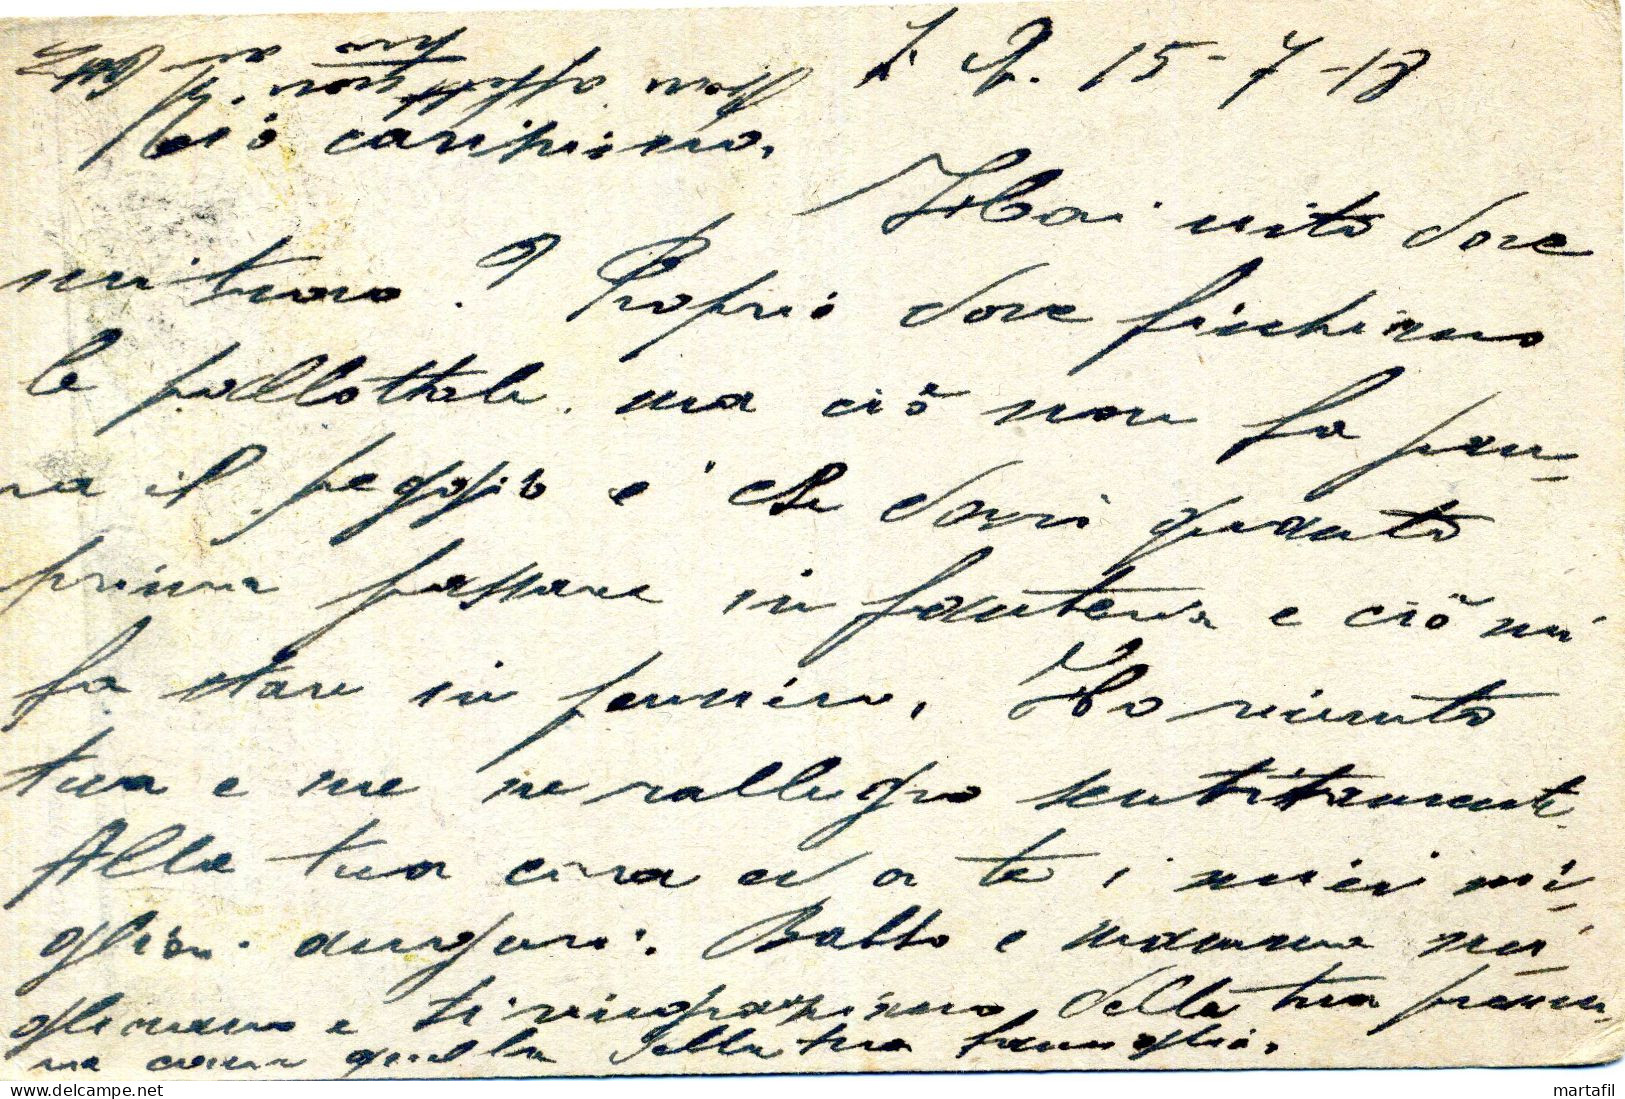 Z. G. 15-7-18
Zio carissimo.
Hai visto dove
mi trovo? Proprio dove fischiano
le pallottole. ma ciò non fa pau-
ra il peggio è che dovrò quanto
prima passare in fanteria e ciò mi
fa stare in pensiero. Ho ricevuto
tua e me ne rallegro sentitament.
Alla tua cara ed a te i miei mi-
gliori auguri. Babbo e mamma mi-
gliorano e ti ringraziano della tua premu-
ra come quella della tua famiglia.
martafil